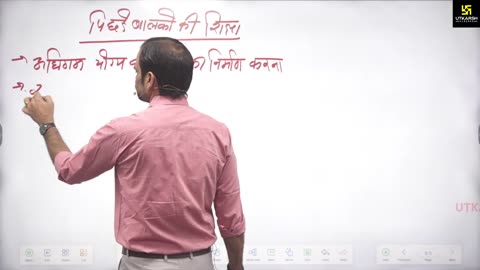 पिछड़े बालकों की शिक्षा
→ अधिगम योग्य का निर्माण करना
→
UTKARSH
UTK